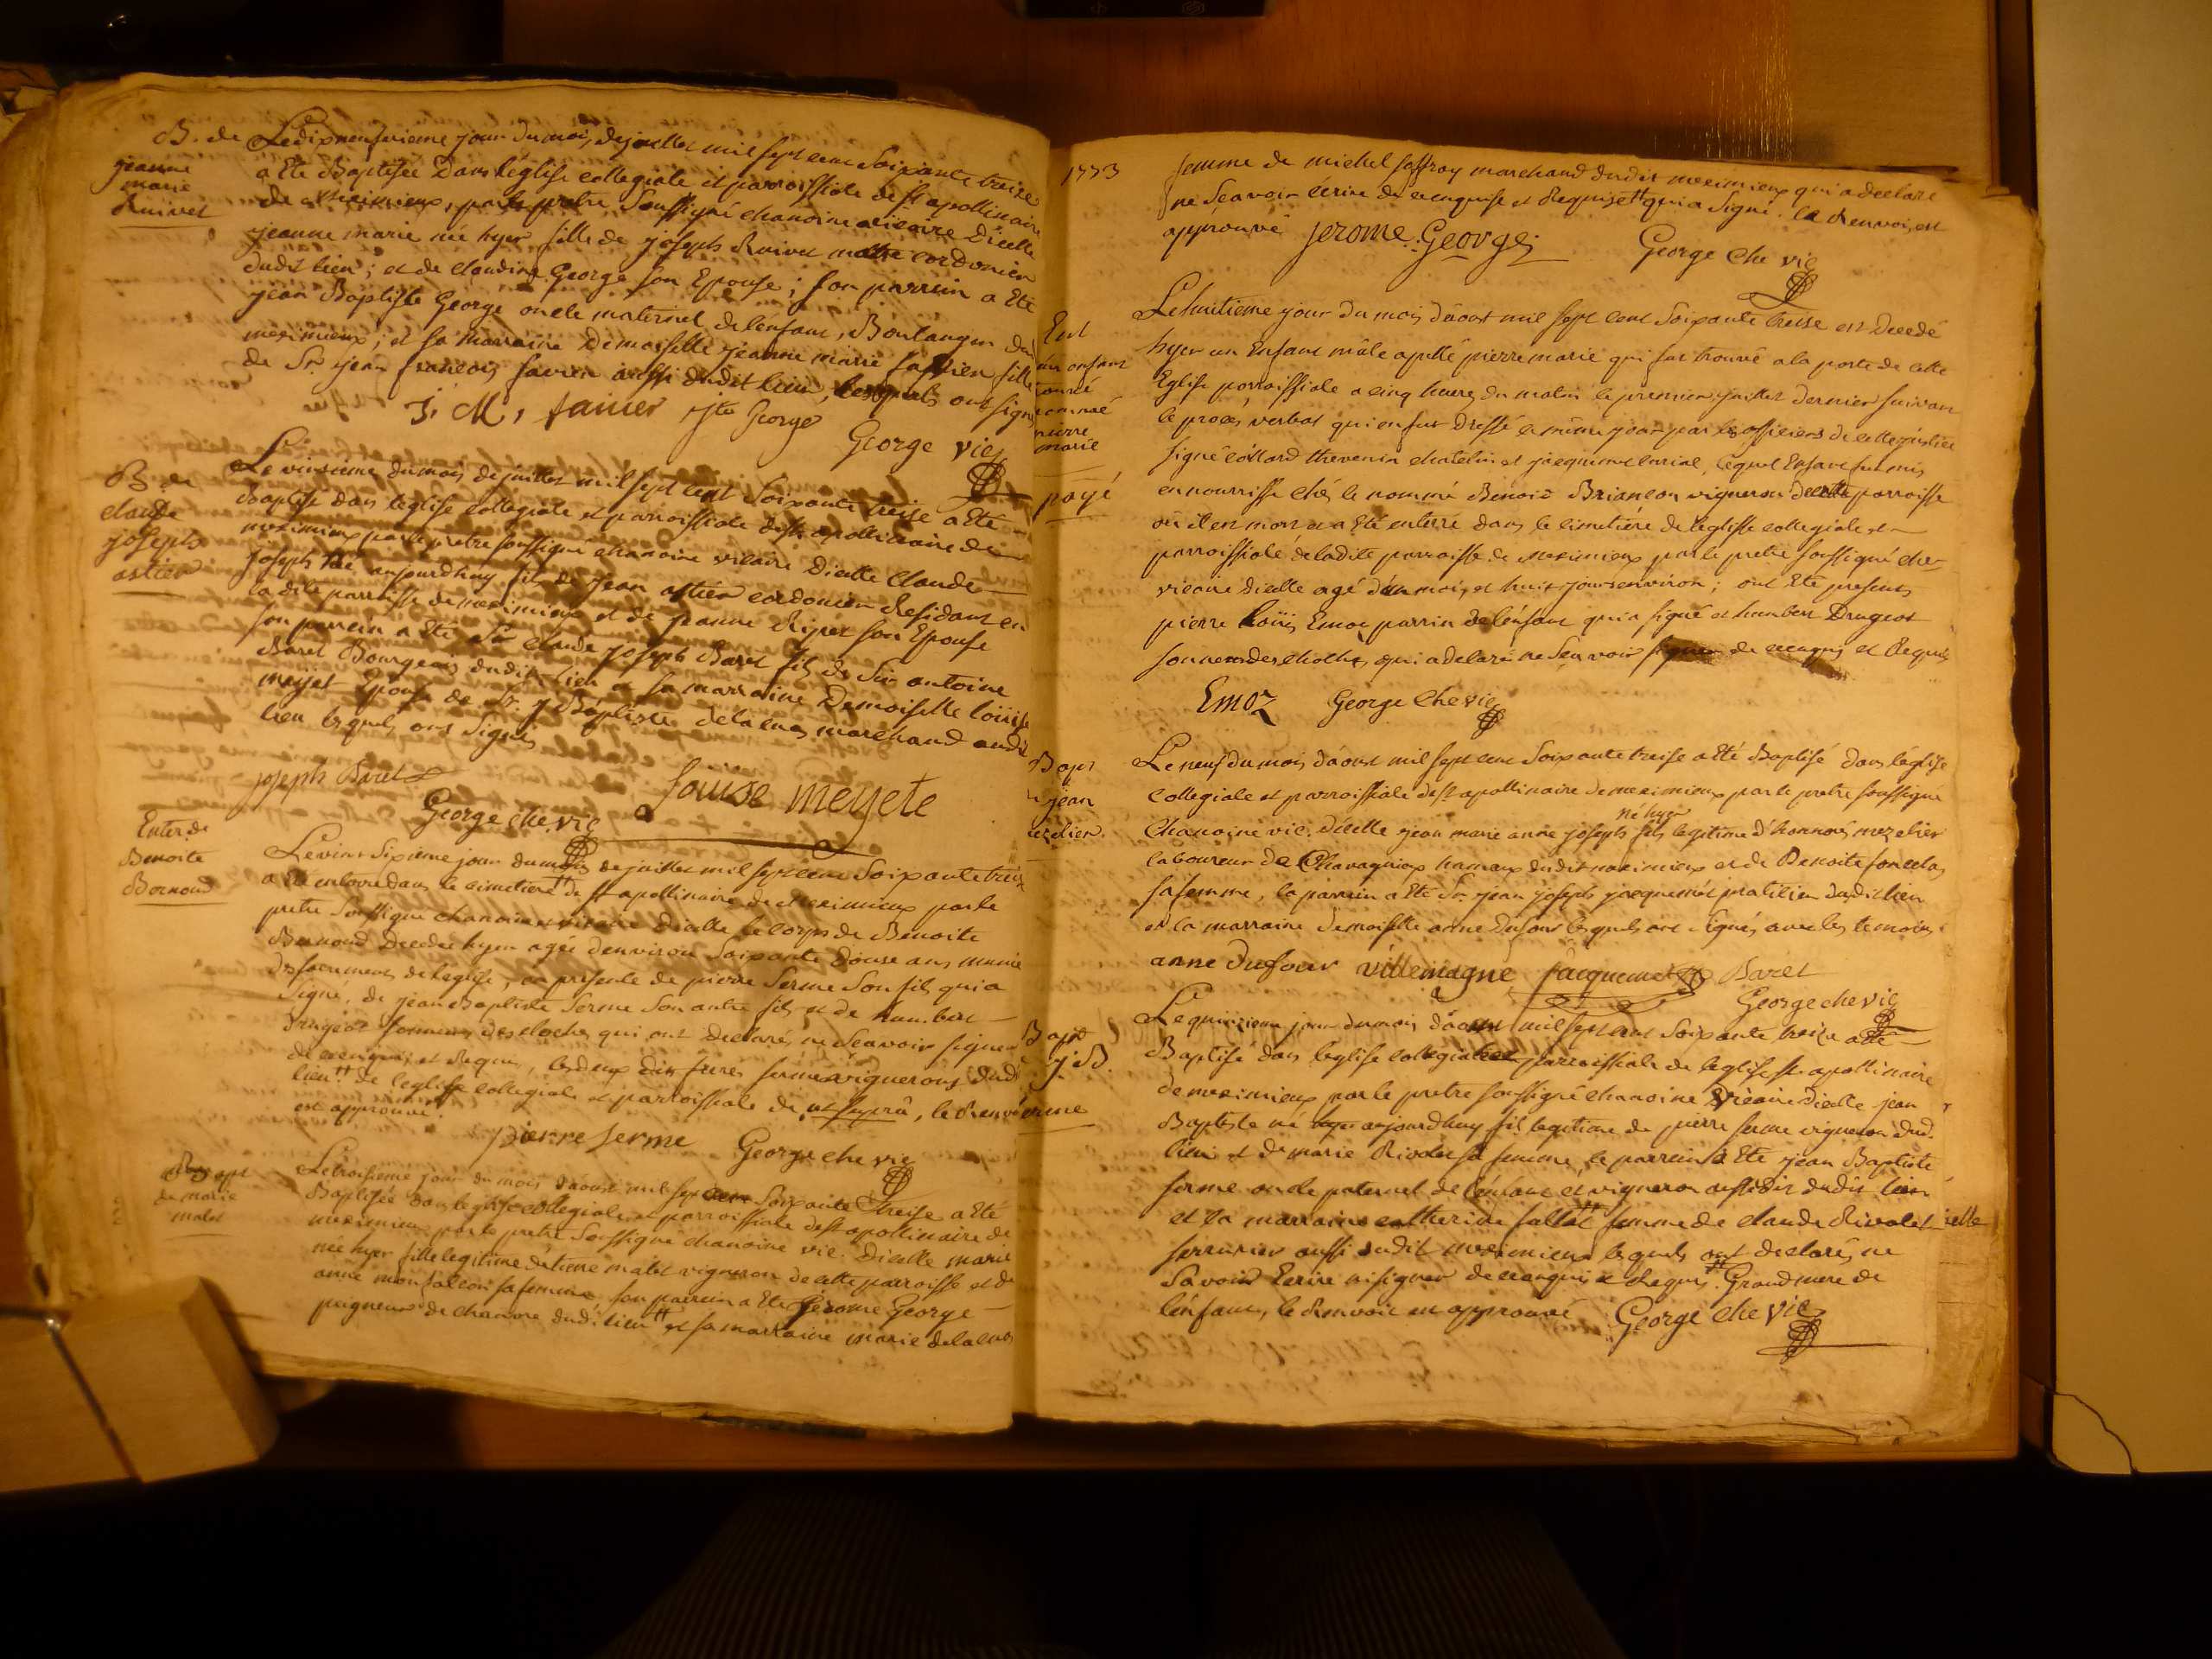 B. de
jeanne
marie
Ruivet
Le dix neufvieme jour du mois de juillet mil sept cent soixante treize
a Eté Baptisée Dans l'église collegiale et parroissiale de st apollinaire
de meximieux, par le pretre soussigné chanoine vicaire d'icelle
jeanne marie née hyer fille de joseph Ruivet maitre cordonier
dudit lieu ; et de claudine George son Epouse ; son parrein a Eté
jean Baptiste George oncle maternel de l'enfant, Boulanger du
meximieux ; et sa marraine Demoiselle jeanne marie fille
de Sr. jean françois favier aussi dudit lieu, lesquels ont signés
J. M. favier jte George
George vic
B. de
claude
joseph
astier
Le vintieme du mois de juillet mil sept cent soixante treise a Eté
Baptisé dans l'église collegiale et parroissiale de st apollinaire de
meximieux par le pretre soussigné chanoine vicaire d'icelle claude
joseph né aujourdhuy fils de jean astier cordonier Residant en
la dite parroisse de meximieux et de jeanne son Epouse
son parrein a Eté Sir claude joseph Baret fils de Sir antoine
Baret Bourgeois dudit lieu et sa marraine Demoiselle loüise
meyet Epouse de Sr. j Baptiste delacua marchand audit
lieu lesquels ont signés
joseph Baret
Louise meyete
George che. vic
Enter. de
Benoite
Bornoud
Le vint sixieme jour du mois de juillet mil sept cent soixante treise
a Eté enterré dans le cimetiere # de st apollinaire de Meximieux par le
pretre soussigné chanoine vicaire d'icelle le corps de Benoite
Bornoud Decedée hyer agée d'environ soixante douse ans munie
des sacremens de l'église, en presente de pierre serme son fils qui a
signé, de jean Baptiste serme son autre fils et de humbert
Drugeot sonneur des cloches qui ont declarés ne sçavoir signer
de ce enquis et Requis, les deux dits freres serme vignerons dud
lieu # de l'eglise collegiale et parroissiale de ut supra, le Renvoi
est approuvé.
pierre serme George che vic
Bapt
de marie
malet
Le troisieme jour du mois d'aoust mil sept cent soixante treise a Eté
Baptisée Dans l'église collegiale et parroissiale de st apollinaire de
meximieux par le pretre soussigné chanoine vic. d'icelle marie
née hyer fille legitime d'etiene malet vigneron de cette parroisse et de
anne sa femme son parrein a Eté jérome George
peigneur de chanvre dudit lieu # et sa marraine marie delacua
1773
femme de michel joffray marchand dudit meximieux qui a declaré
ne sçavoir écrire de ce enquise et Requise # qui a signé. le Renvoi est
approuvé jerome George
George che vic
Ent
un enfant
trouvé
nommé
pierre
marie
payé
Le huitieme jour du mois d'aoust mil sept cent soixante treise est Decedé
hyer un Enfant mâle apellé pierre marie qui fut trouvé a la porte de cette
Eglise parroissiale a cinq heures du matin le premier juillet dernier suivant
le procés verbal qui en fut dressé le même jour par les officiers de cette justice
signé thevenin chatelin et jacquemet curial, lequel Enfant fut mis
en nourrisse chés le nommé Benoit Briancon vigneron de cette parroisse
où il est mort et a Eté enterré dans le cimetiére de l'eglisse collegiale et
parroissiale de ladite parroisse de Meximieux par le pretre soussigné che
vicaire d'icelle agé d'un mois et huit jours environ ; ont Eté presents
pierre loüis Emoz parrin de l'enfant qui a signé et humbert Drugeot
sonneur des cloches, qui a declaré ne sçavoir signer de ce enquis et Requis
Emoz George che vic
Bapt
de jean
mezelier.
Le neuf du mois d'aoust mil sept cent soixante treise a Eté Baptisé dans l'église
collegiale et parroissiale de st apollinaire de meximieux par le pretre soussigné
né hyer
chanoine vic. d'icelle jean marie anne joseph fils legitime d'honnoré mezelier
laboureur de Chavagnieux hameau dudit meximieux et de Benoite
sa femme, le parrein a Eté Sr. jean joseph jacquemet praticien dudit lieu
et la marraine Demoiselle anne Dufour lesquels ont signés avec les temoins.
anne Dufour villemagne jacquemet Baret
George che vic
Bapt
j. B.
serme
Le quinzieme jour du mois d'aoust mil sept cent soixante treize a Eté
Baptisé dans l'église collegiale et parroissiale de l'eglise st apollinaire
de meximieux par le pretre soussigné chanoine vicaire d'icelle jean
Baptiste né aujourdhuy fils legitime de pierre serme vigneron dud.
lieu et de marie Rivolet sa femme, le parrein a Eté jean Baptiste
serme oncle paternel de l'enfant et vigneron aussi dudit lieu
et sa marraine catherine fallet # femme de claude Rivolet
serrurier aussi dudit meximieux lesquels ont declarés ne
savoir Ecrire ni signer de ce enquis et Requis. # Grand mere de
l'enfant, le Renvoit est approuvé George che vic